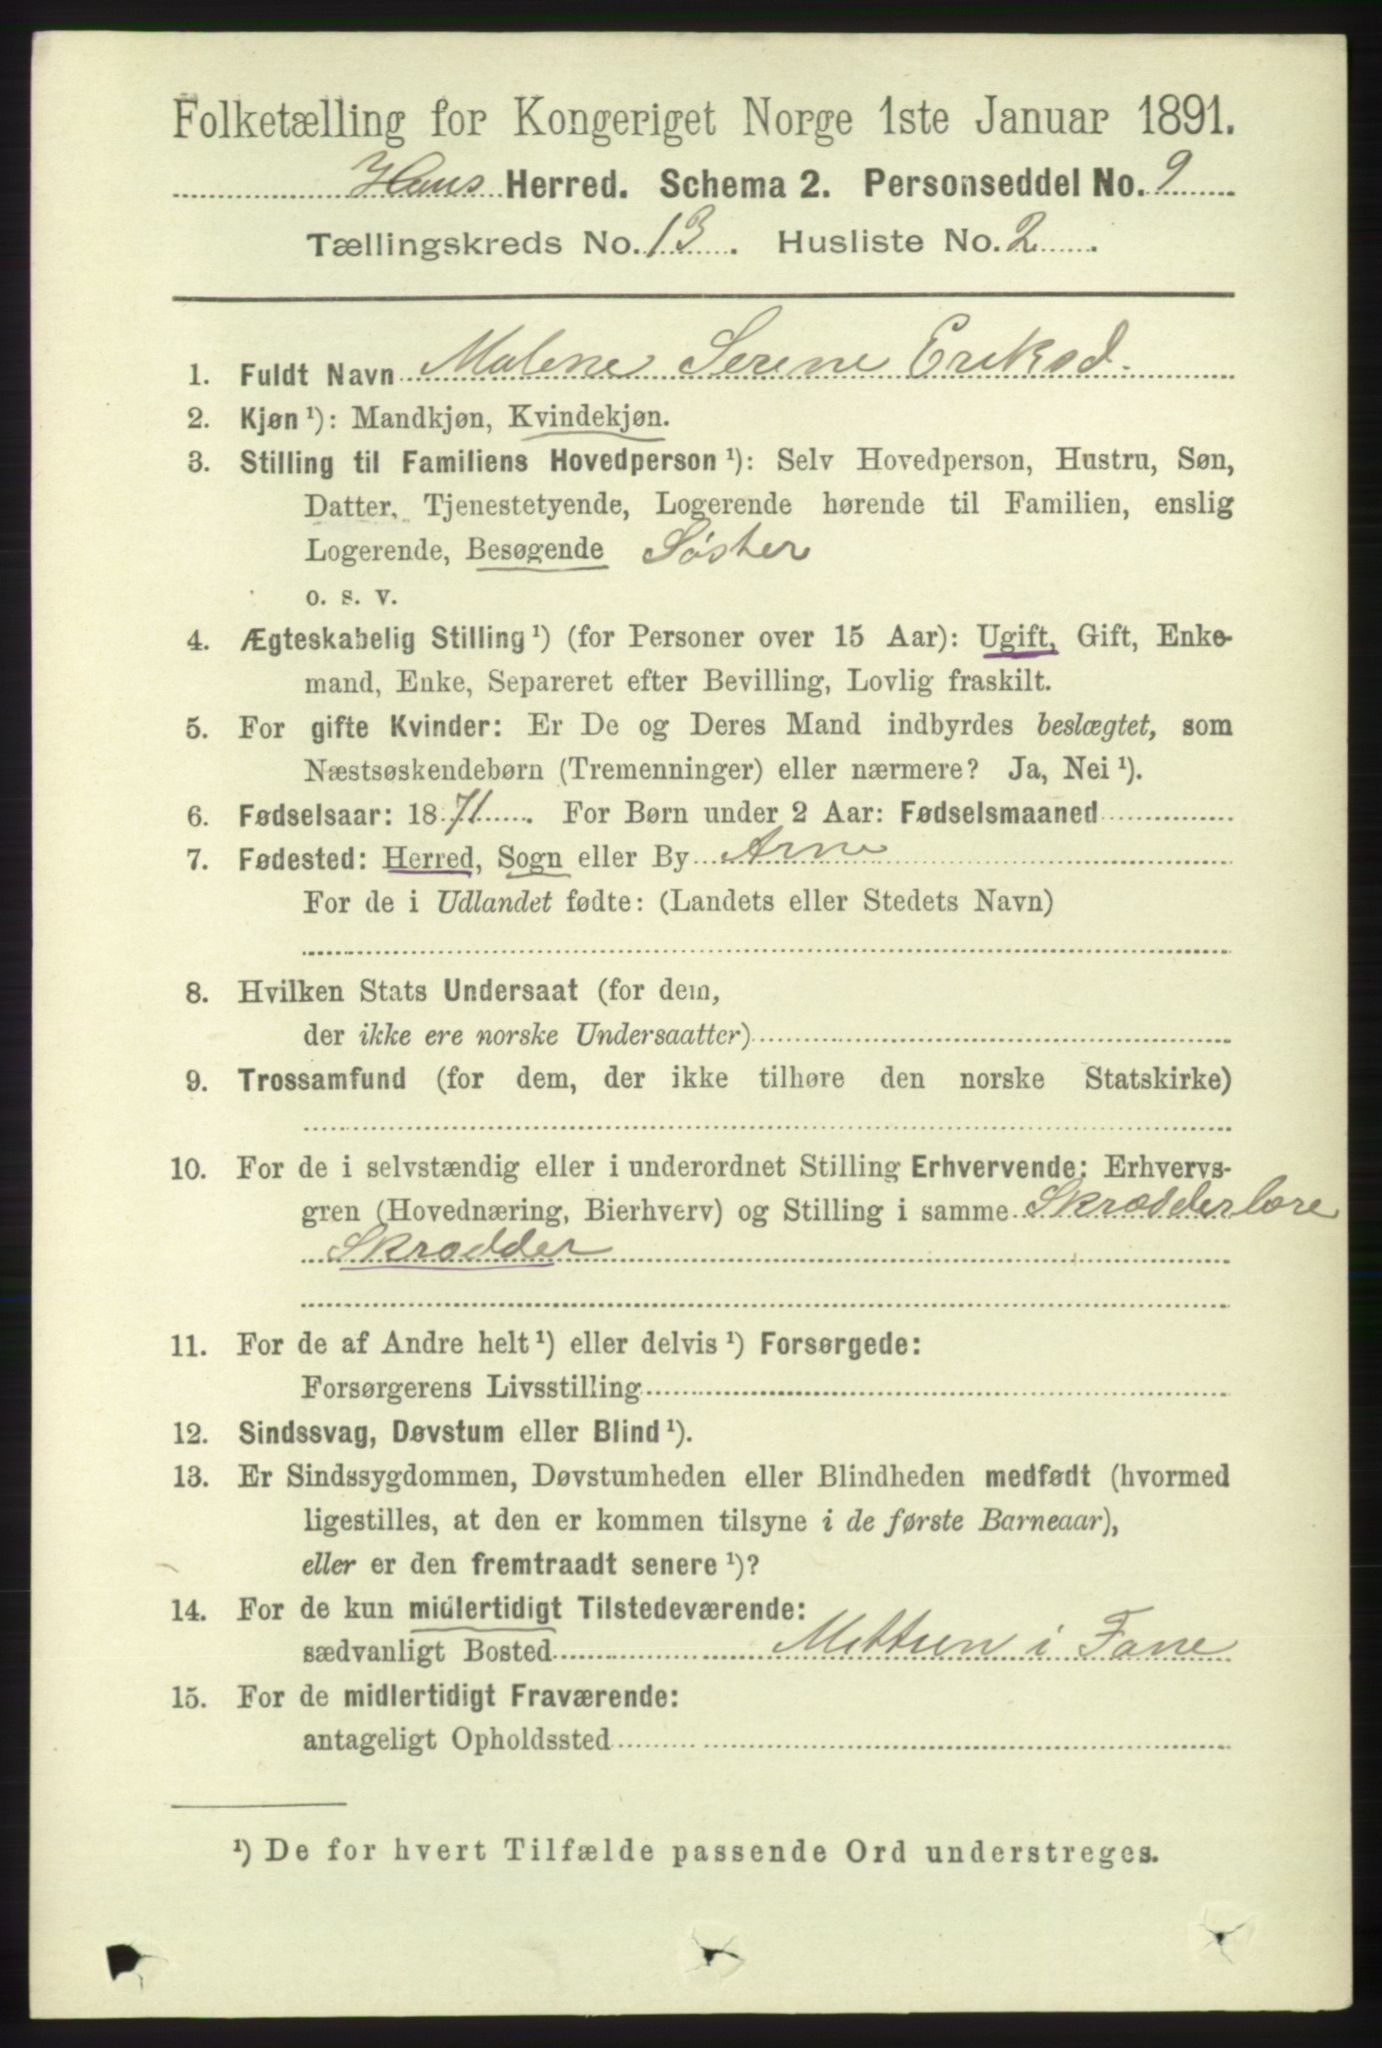 Folketælling for Kongeriget Norge 1ste Januar 1891.
Haus Herred. Schema 2. Personseddel No. 9
Tællingskreds No. 13. Husliste No. 2.
1. Fuldt Navn Malene Serene Eriksd.
2. Kjøn ¹): Mandkjøn, Kvindekjøn.
3. Stilling til Familiens Hovedperson ¹): Selv Hovedperson, Hustru, Søn,
Datter, Tjenestetyende, Logerende hørende til Familien, enslig
Logerende, Besøgende Søster
o. s. v.
4. Ægteskabelig Stilling ¹) (for Personer over 15 Aar): Ugift, Gift, Enke-
mand, Enke, Separeret efter Bevilling, Lovlig fraskilt.
5. For gifte Kvinder: Er De og Deres Mand indbyrdes beslægtet, som
Næstsøskendebørn (Tremenninger) eller nærmere? Ja, Nei ¹).
6. Fødselsaar: 1871. For Børn under 2 Aar: Fødselsmaaned
7. Fødested: Herred, Sogn eller By Arne
For de i Udlandet fødte: (Landets eller Stedets Navn)
8. Hvilken Stats Undersaat (for dem,
der ikke ere norske Undersaatter)
9. Trossamfund (for dem, der ikke tilhøre den norske Statskirke)
10. For de i selvstændig eller i underordnet Stilling Erhvervende: Erhvervs-
gren (Hovednæring, Bierhverv) og Stilling i samme Skrædderlære
Skrædder
11. For de af Andre helt ¹) eller delvis ¹) Forsørgede:
Forsørgerens Livsstilling
12. Sindssvag, Døvstum eller Blind ¹).
13. Er Sindssygdommen, Døvstumheden eller Blindheden medfødt (hvormed
ligestilles, at den er kommen tilsyne i de første Barneaar),
eller er den fremtraadt senere ¹)?
14. For de kun midlertidigt Tilstedeværende:
sædvanligt Bosted i Fane
15. For de midlertidigt Fraværende:
antageligt Opholdssted
¹) De for hvert Tilfælde passende Ord understreges.